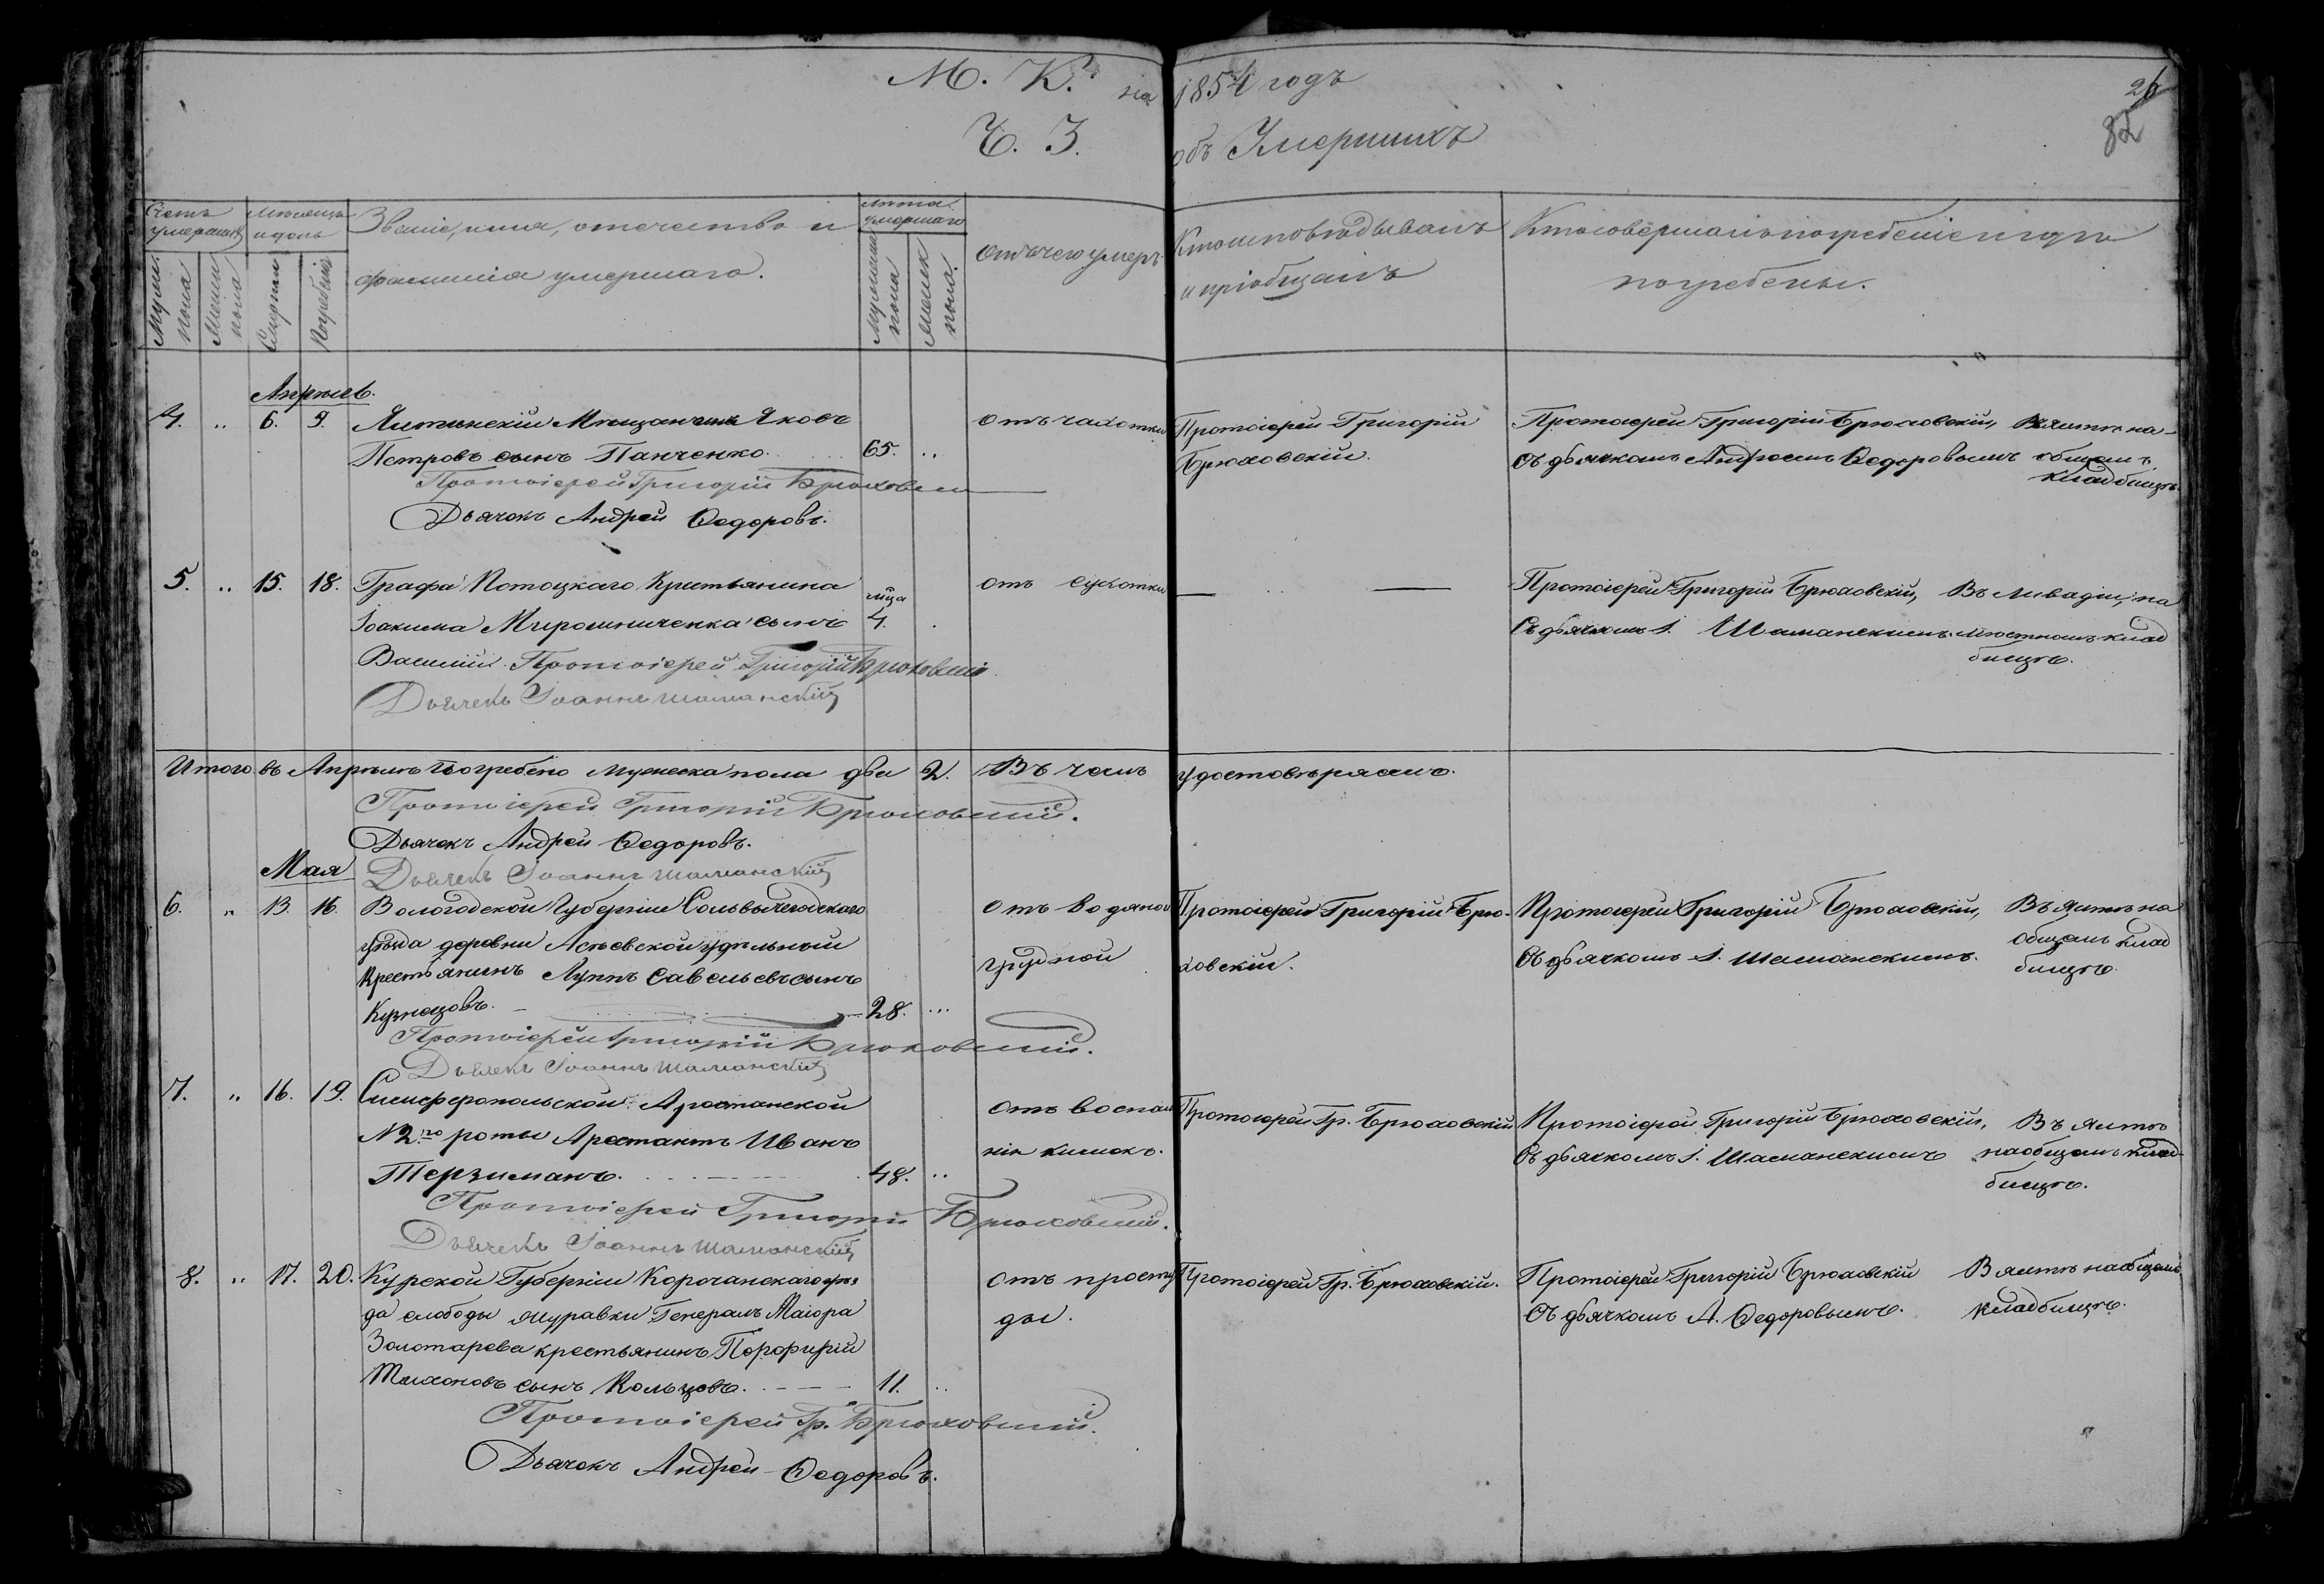 М. К. на 1854 годъ
Ч. 3. объ Умершихъ
26
82
Счетъ умершихъ
Мѣсяцъ и день
Званіе, имя, отечество и
фамилія умершаго.
Лѣта умершаго
Отъ чего умеръ
Кто исповѣдывалъ
и пріобщалъ
Кто совершалъ погребеніе и гдѣ
погребены.
Мужск пола
Женск пола
Смерти
Погребенія
Мужеска пола
Женск пола.
Апрѣль.
4. „ 6. 9. Ялтинскій Мѣщанинъ Яковъ отъ чахотки Протоіерей Григорій Протоіерей Григорій Брюховскій, В Ялтѣ на
Петровъ сынъ Панченко. 65. „ Брюховскій. Съ дьячкомъ Андреемъ Ѳедоровымъ общемъ
кладбищѣ.
Протоіерей Григорій Брюховскій
Дьячекъ Андрей Ѳедоровъ.
5. „ 15. 18. Графа Потоцкаго Крестьянина мца отъ сухотки Протоіерей Григорій Брюховскій, Въ Ливадіи, на
Іоакима Мирошниченка сынъ 4. Съ дьячкомъ І. Шаманскимъ. мѣстномъ клад
Василій. Протоіерей Григорій Брюховскій бищѣ.
Дьячекъ Іоаннъ Шаманскій
Итого въ Апрѣлѣ погребено мужеска пола два 2. Въ чемъ удостовѣряемъ.
Протоіерей Григорій Брюховскій.
Дьячекъ Андрей Ѳедоровъ.
Мая Дьячекъ Іоаннъ Шаманскій
6. „ 13. 16. Вологодской Губерніи Сольвычегодскаго Отъ водяной Протоіерей Григорій Брю- Протоіерей Григорій Брюховскій, Въ Ялтѣ на
уѣзда деревни удѣльный грудной ховскій. Съ дьячкомъ І. Шаманскимъ. общемъ клад
Крестьянинъ Луппъ Савельевъ сынъ бищѣ.
Кузнецовъ. 28. „
Протоіерей Григорій Брюховскій.
Дьячекъ Іоаннъ Шаманскій
7. „ 16. 19. Симферопольской Арестанской Отъ воспале Протоіерей Гр. Брюховскій Протоіерей Григорій Брюховскій, Въ Ялтѣ
№ 2го роты Арестантъ Иванъ нія кишокъ. Съ дьячкомъ І. Шаманскимъ на общемъ клад-
Терзиманъ. 48. „ бищѣ.
Протоіерей Григорій Брюховскій.
Дьячекъ Іоаннъ Шаманскій
8. „ 17. 20. Курской Губерніи Корочанскаго уѣз Отъ просту Протоіерей Гр. Брюховскій. Протоіерей Григорій Брюховскій В Ялтѣ на общемъ
да слободы Муравки Генералъ Маіора ды. Съ дьячкомъ А. Ѳедоровымъ. кладбищѣ.
Золотарева крестьянинъ Порфирій
Тихоновъ сынъ Кольцовъ. 11. „
Протоіерей Гр. Брюховскій.
Дьячекъ Андрей Ѳедоровъ.